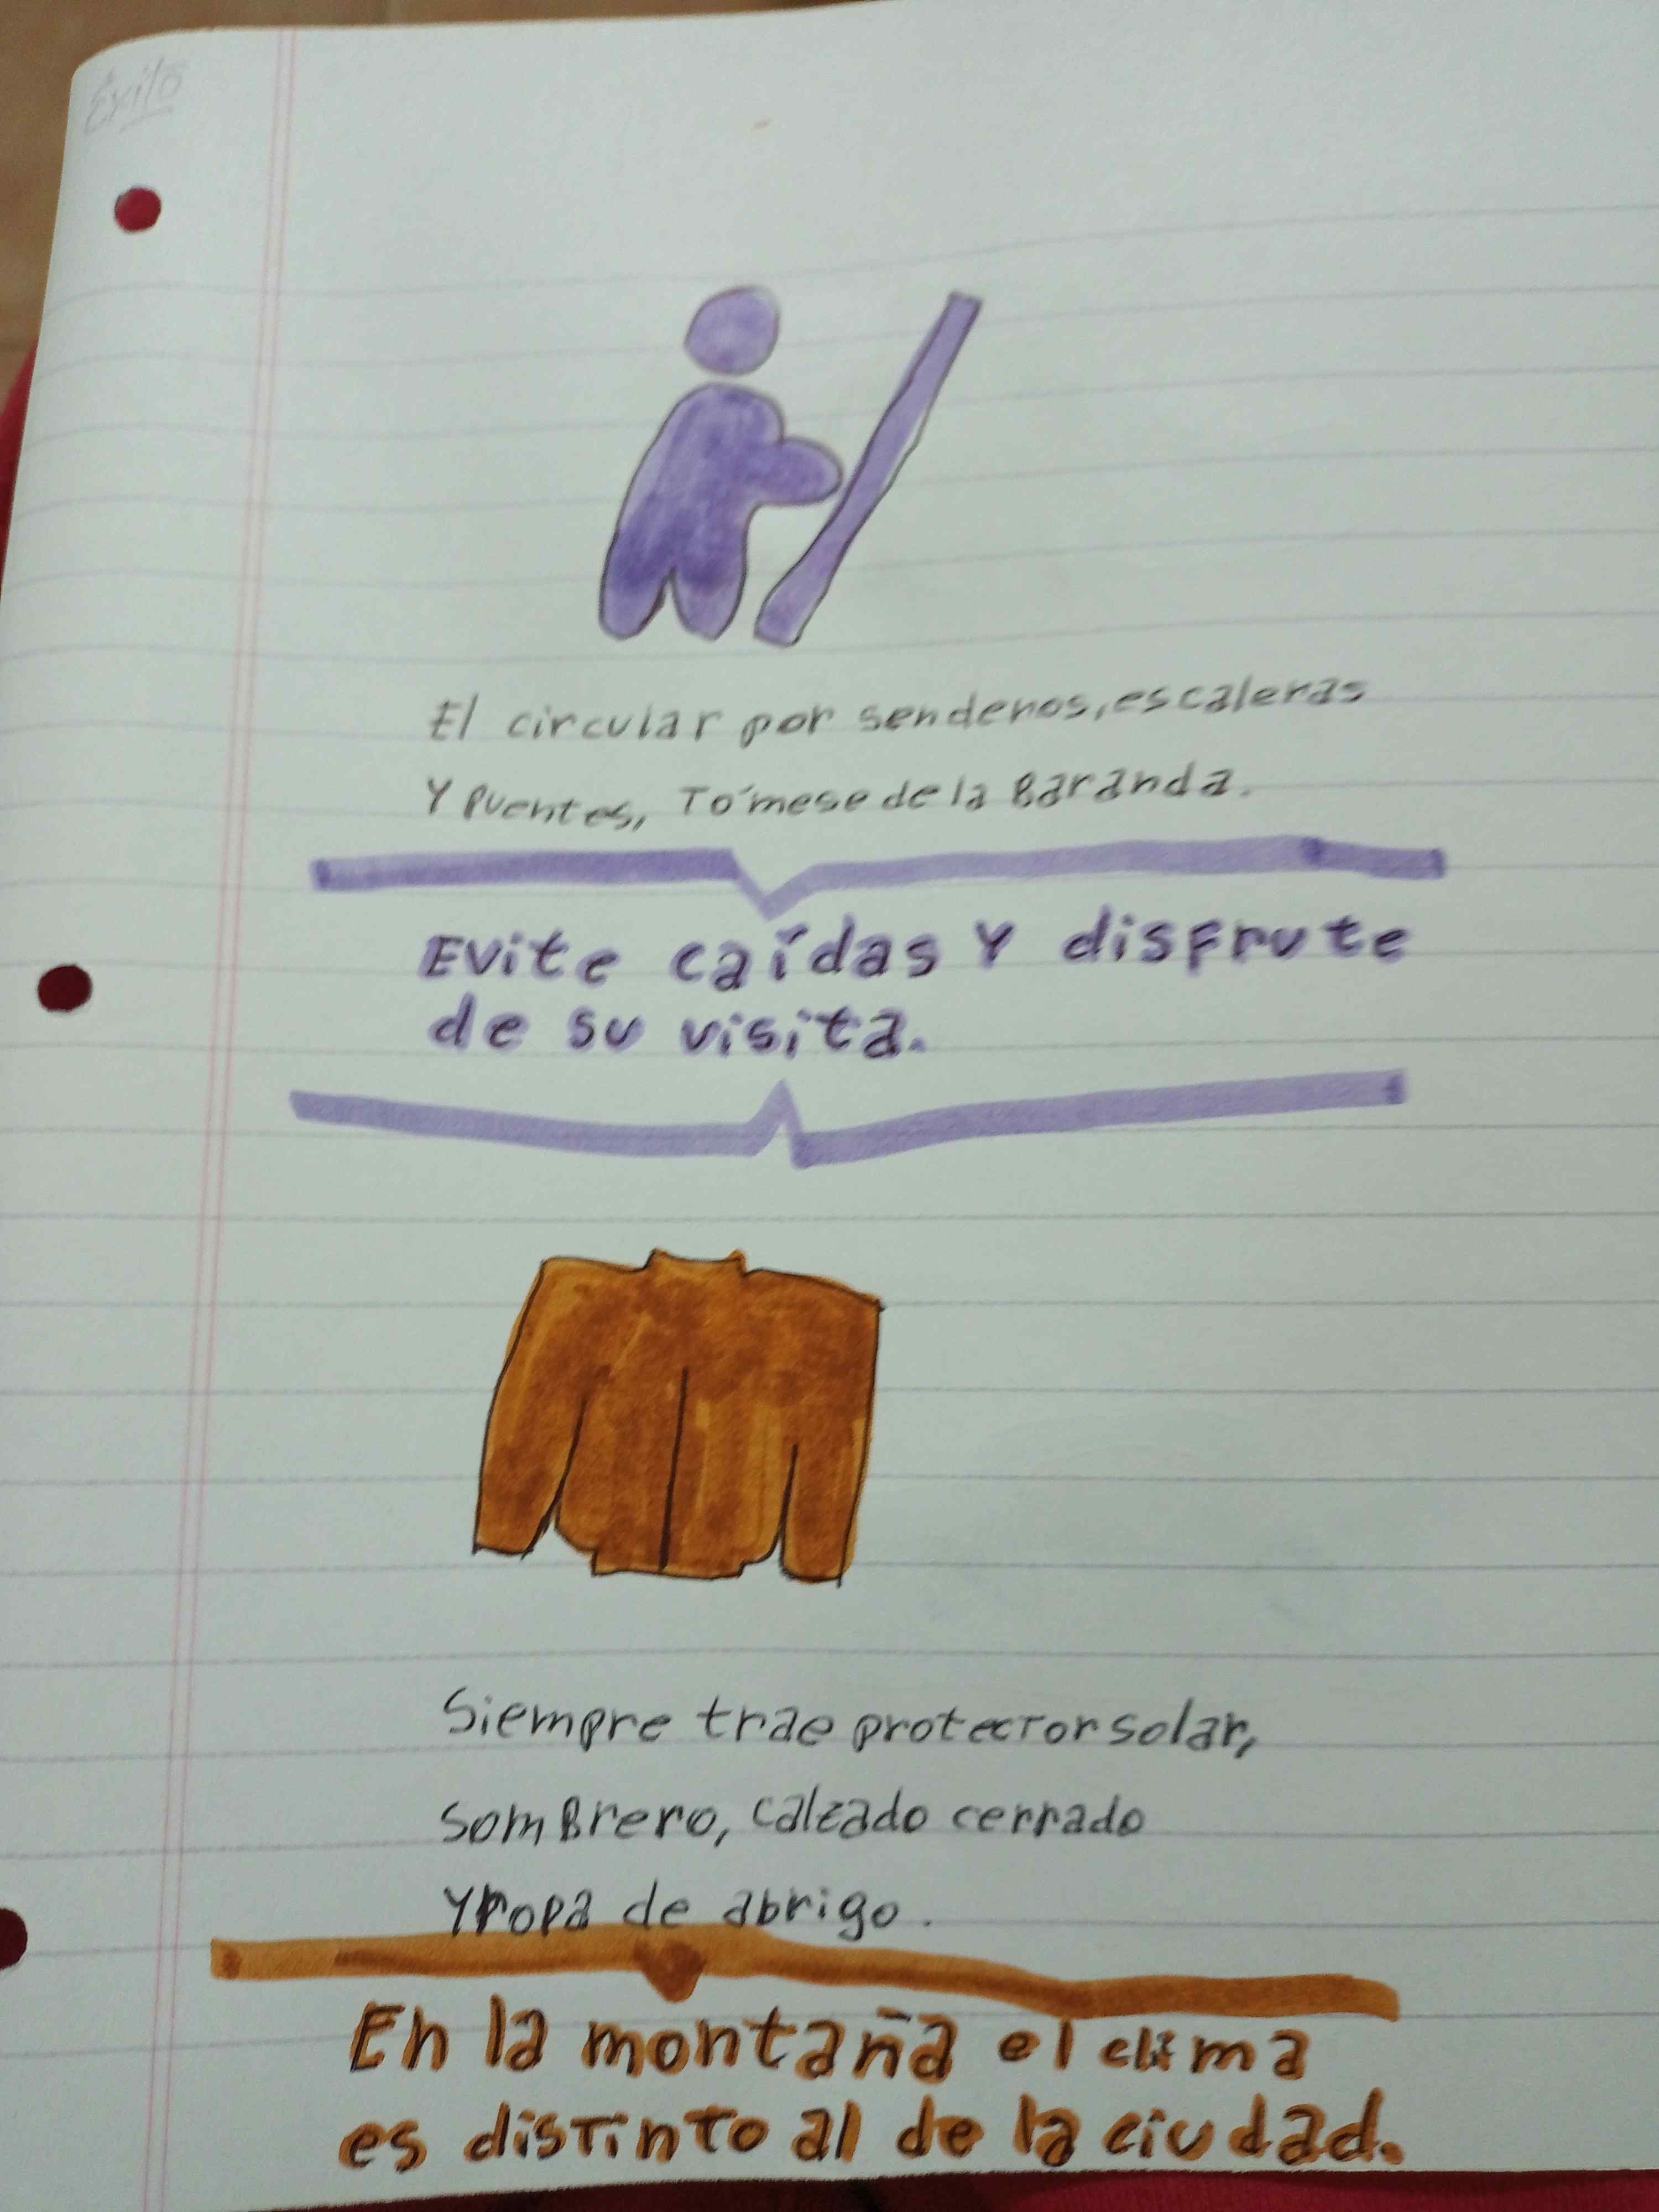 Éxito
El circular por senderos, escaleras
Y Puentes, Tómese de la Baranda.
Evite caídas Y disfrute
de su visita.
Siempre trae protector solar,
SomBrero, calzado cerrado
Y ropa de abrigo.
En la montaña el clima
es distinto al de la ciudad.